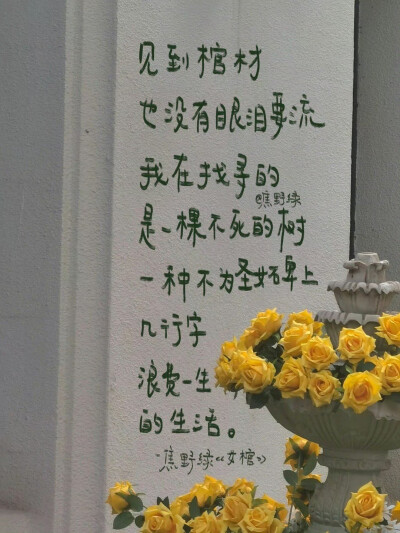 见到棺材
也没有眼泪要流
我在找寻的
@ 野绿
是一棵不死的树
一种不为圣女碑上
几行字
浪费一生
的生活。
野绿《女棺》